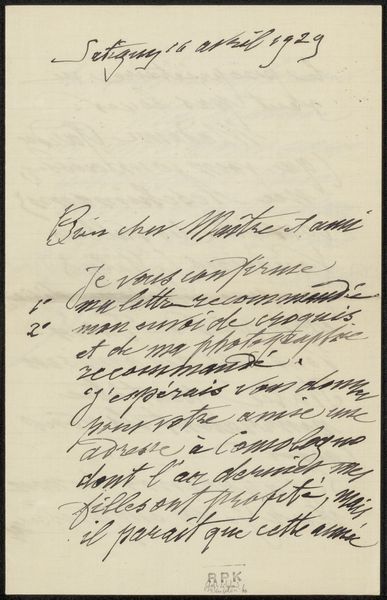 Satigny 16 avril 1929
Bien cher Maître & ami
Je vous confirme
1° ma lettre recommandée
2° mon envoi de croquis
et de ma photographie
recommandé.
J'espérais vous donner
pour votre amie une
adresse à Comologno
dont l'an dernier mes
filles ont profité, mais
il paraît que cette année
R.P.K.